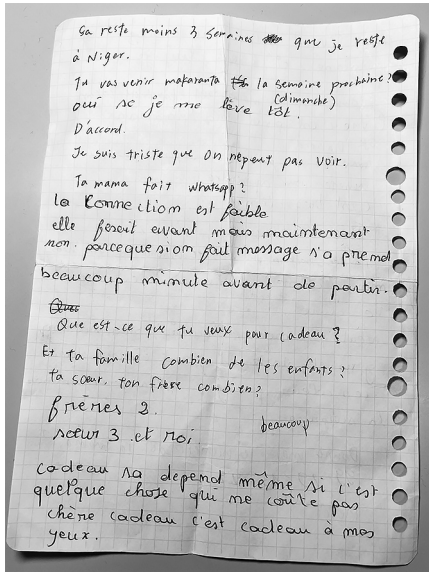 Sa reste moins 3 semaines que je reste
à Niger.
Tu vas venir makaranta la semaine prochaine?
(dimanche)
oui se je me lève tôt.
D'accord.
Je suis triste que on nepeut pas voir.
Ta mama fait whatsapp?
la Connection est faible
elle feseit avant mais maintenant
non. parceque si on fait message s'a prend
beaucoup minute avant de partir.
Que est-ce que tu veux pour cadeau?
Et ta famille combien de les enfants?
ta sœur. ton frère combien?
frères 2.
sœur 3 .et moi.
beaucoup
cadeau sa depend même si c'est
quelque chose qui ne coûte pas
chère cadeau c'est cadeau à mes
yeux.